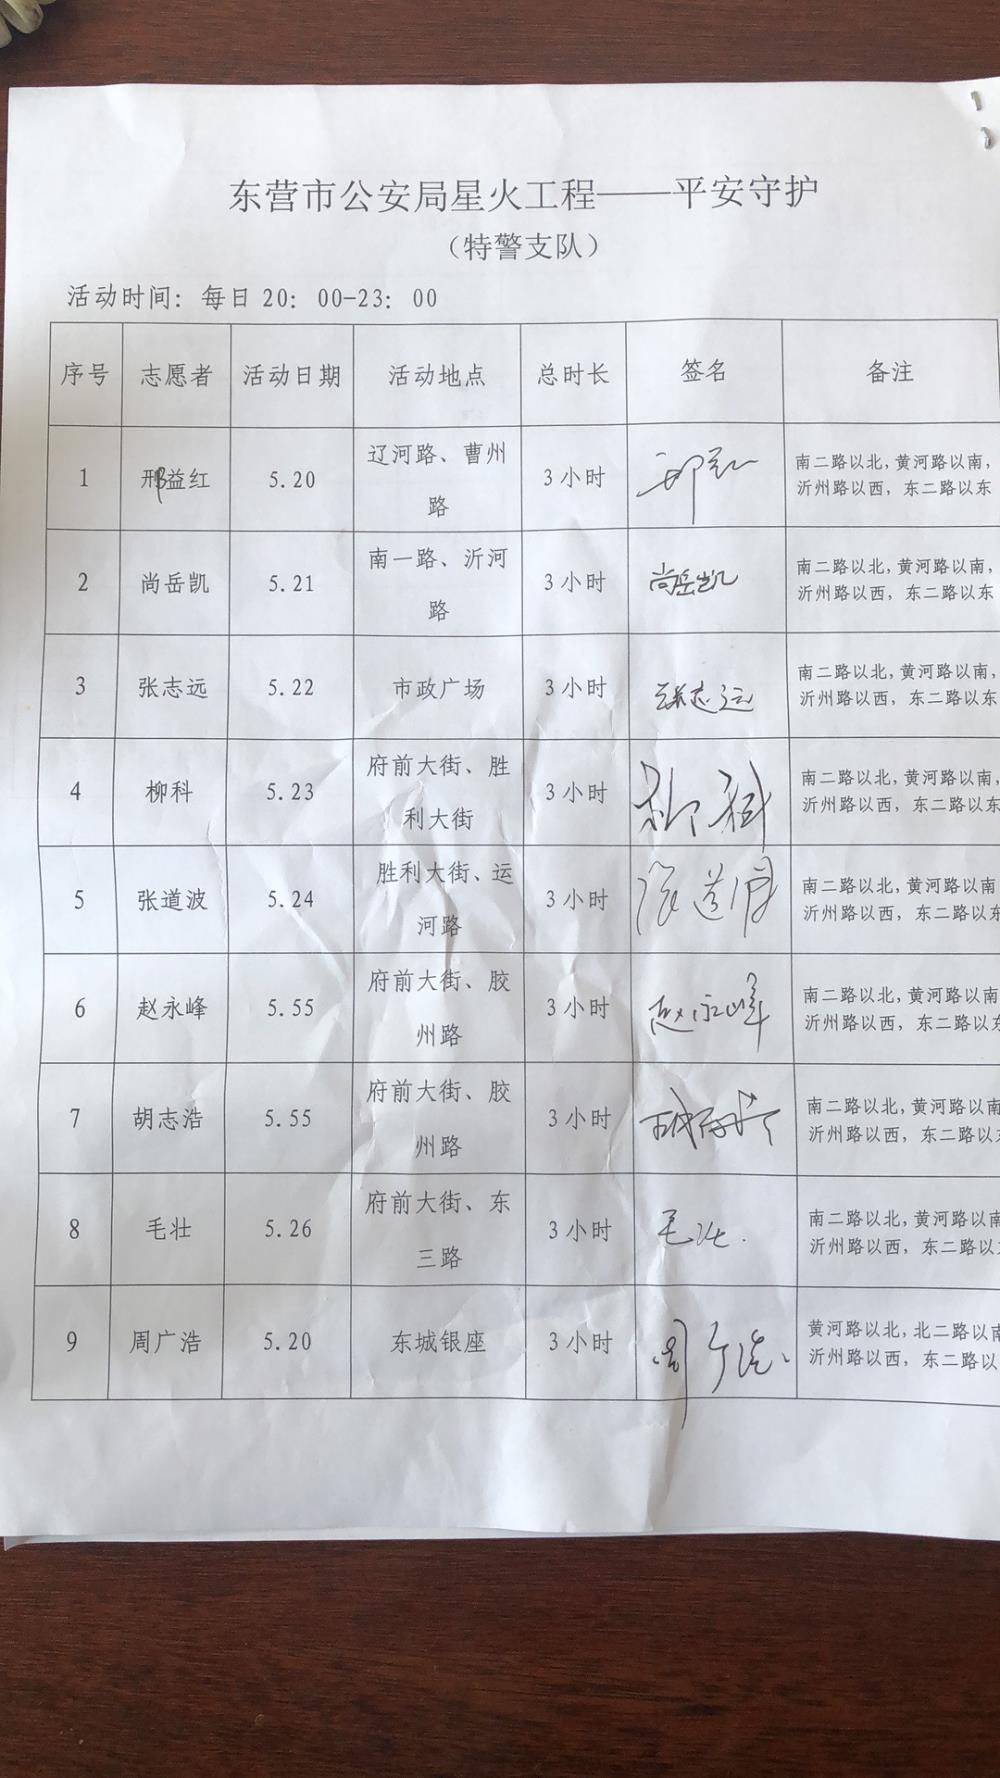 东营市公安局星火工程——平安守护
（特警支队）
活动时间：每日 20：00-23：00
序号 志愿者 活动日期 活动地点 总时长 签名 备注
1 邢益红 5.20 辽河路、曹州路 3小时 南二路以北，黄河路以南，
沂州路以西，东二路以东
2 尚岳凯 5.21 南一路、沂河路 3小时 尚岳凯 南二路以北，黄河路以南，
沂州路以西，东二路以东
3 张志远 5.22 市政广场 3小时 张志远 南二路以北，黄河路以南，
沂州路以西，东二路以东
4 柳科 5.23 府前大街、胜利大街 3小时 柳科 南二路以北，黄河路以南，
沂州路以西，东二路以东
5 张道波 5.24 胜利大街、运河路 3小时 张道波 南二路以北，黄河路以南
沂州路以西，东二路以东
6 赵永峰 5.55 府前大街、胶州路 3小时 赵永峰 南二路以北，黄河路以南
沂州路以西，东二路以东
7 胡志浩 5.55 府前大街、胶州路 3小时 南二路以北，黄河路以南
沂州路以西，东二路以
8 毛壮 5.26 府前大街、东三路 3小时 毛壮 南二路以北，黄河路以南
沂州路以西，东二路以
9 周广浩 5.20 东城银座 3小时 周广浩 黄河路以北，北二路以南
沂州路以西，东二路以